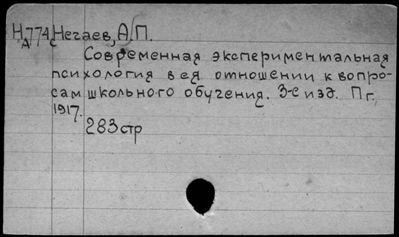 Н774 Негаев, А.П.
А
Современная экспериментальная
психология в ея отношении к вопро-
сам школьного обучения. 3-е изд. Пг.,
1917.
283 стр